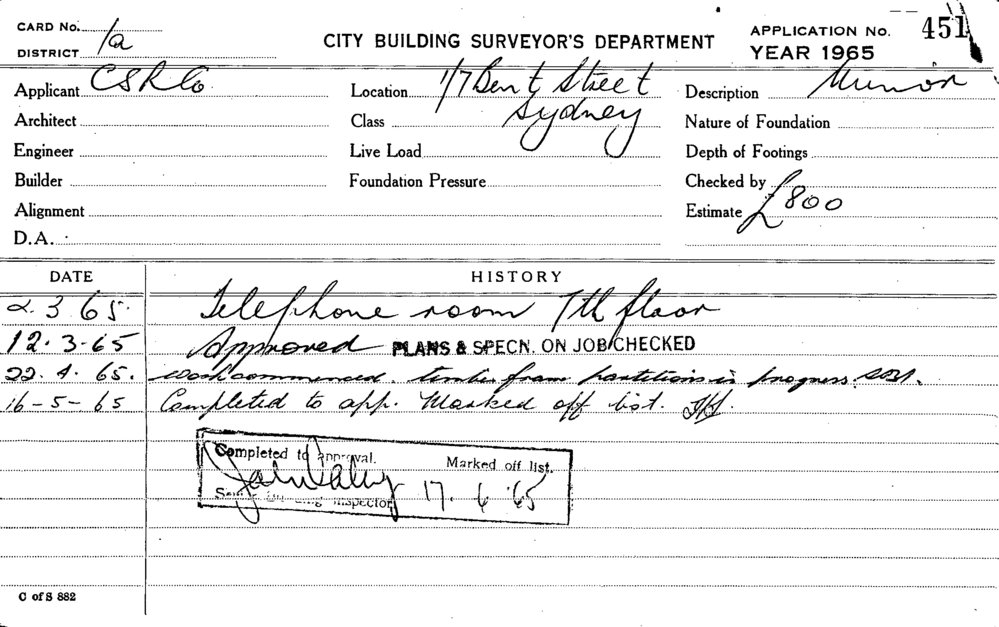 CARD No.
DISTRICT 1a
CITY BUILDING SURVEYOR'S DEPARTMENT
APPLICATION No. 451
YEAR 1965
Applicant C S R Co
Location 1/7 Bent Street
Sydney
Description
Architect
Class
Nature of Foundation
Engineer
Live Load
Depth of Footings
Builder
Foundation Pressure
Checked by
Alignment
Estimate £800
D.A.
DATE HISTORY
2.3.65. Telephone room 7th floor
12.3.65 Approved PLANS & SPECN. ON JOB CHECKED
22.4.65. Work commenced. timber fram partitions in progress.
16-5-65 Completed to app. Marked off list.
Completed to approval. Marked off list.
Inspector 17.6.65
C of S 882